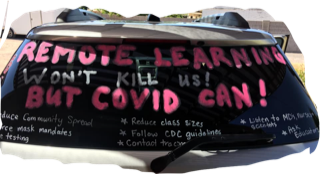 REMOTE LEARNING
WON'T KILL US!
BUT COVID CAN!
duce Community Spread
ree mask mandates
e testing
* Reduce class sizes
* Follow CDC guidelines
* Contact trac
* Listen to MDs, nurses,
* Ask
Educators